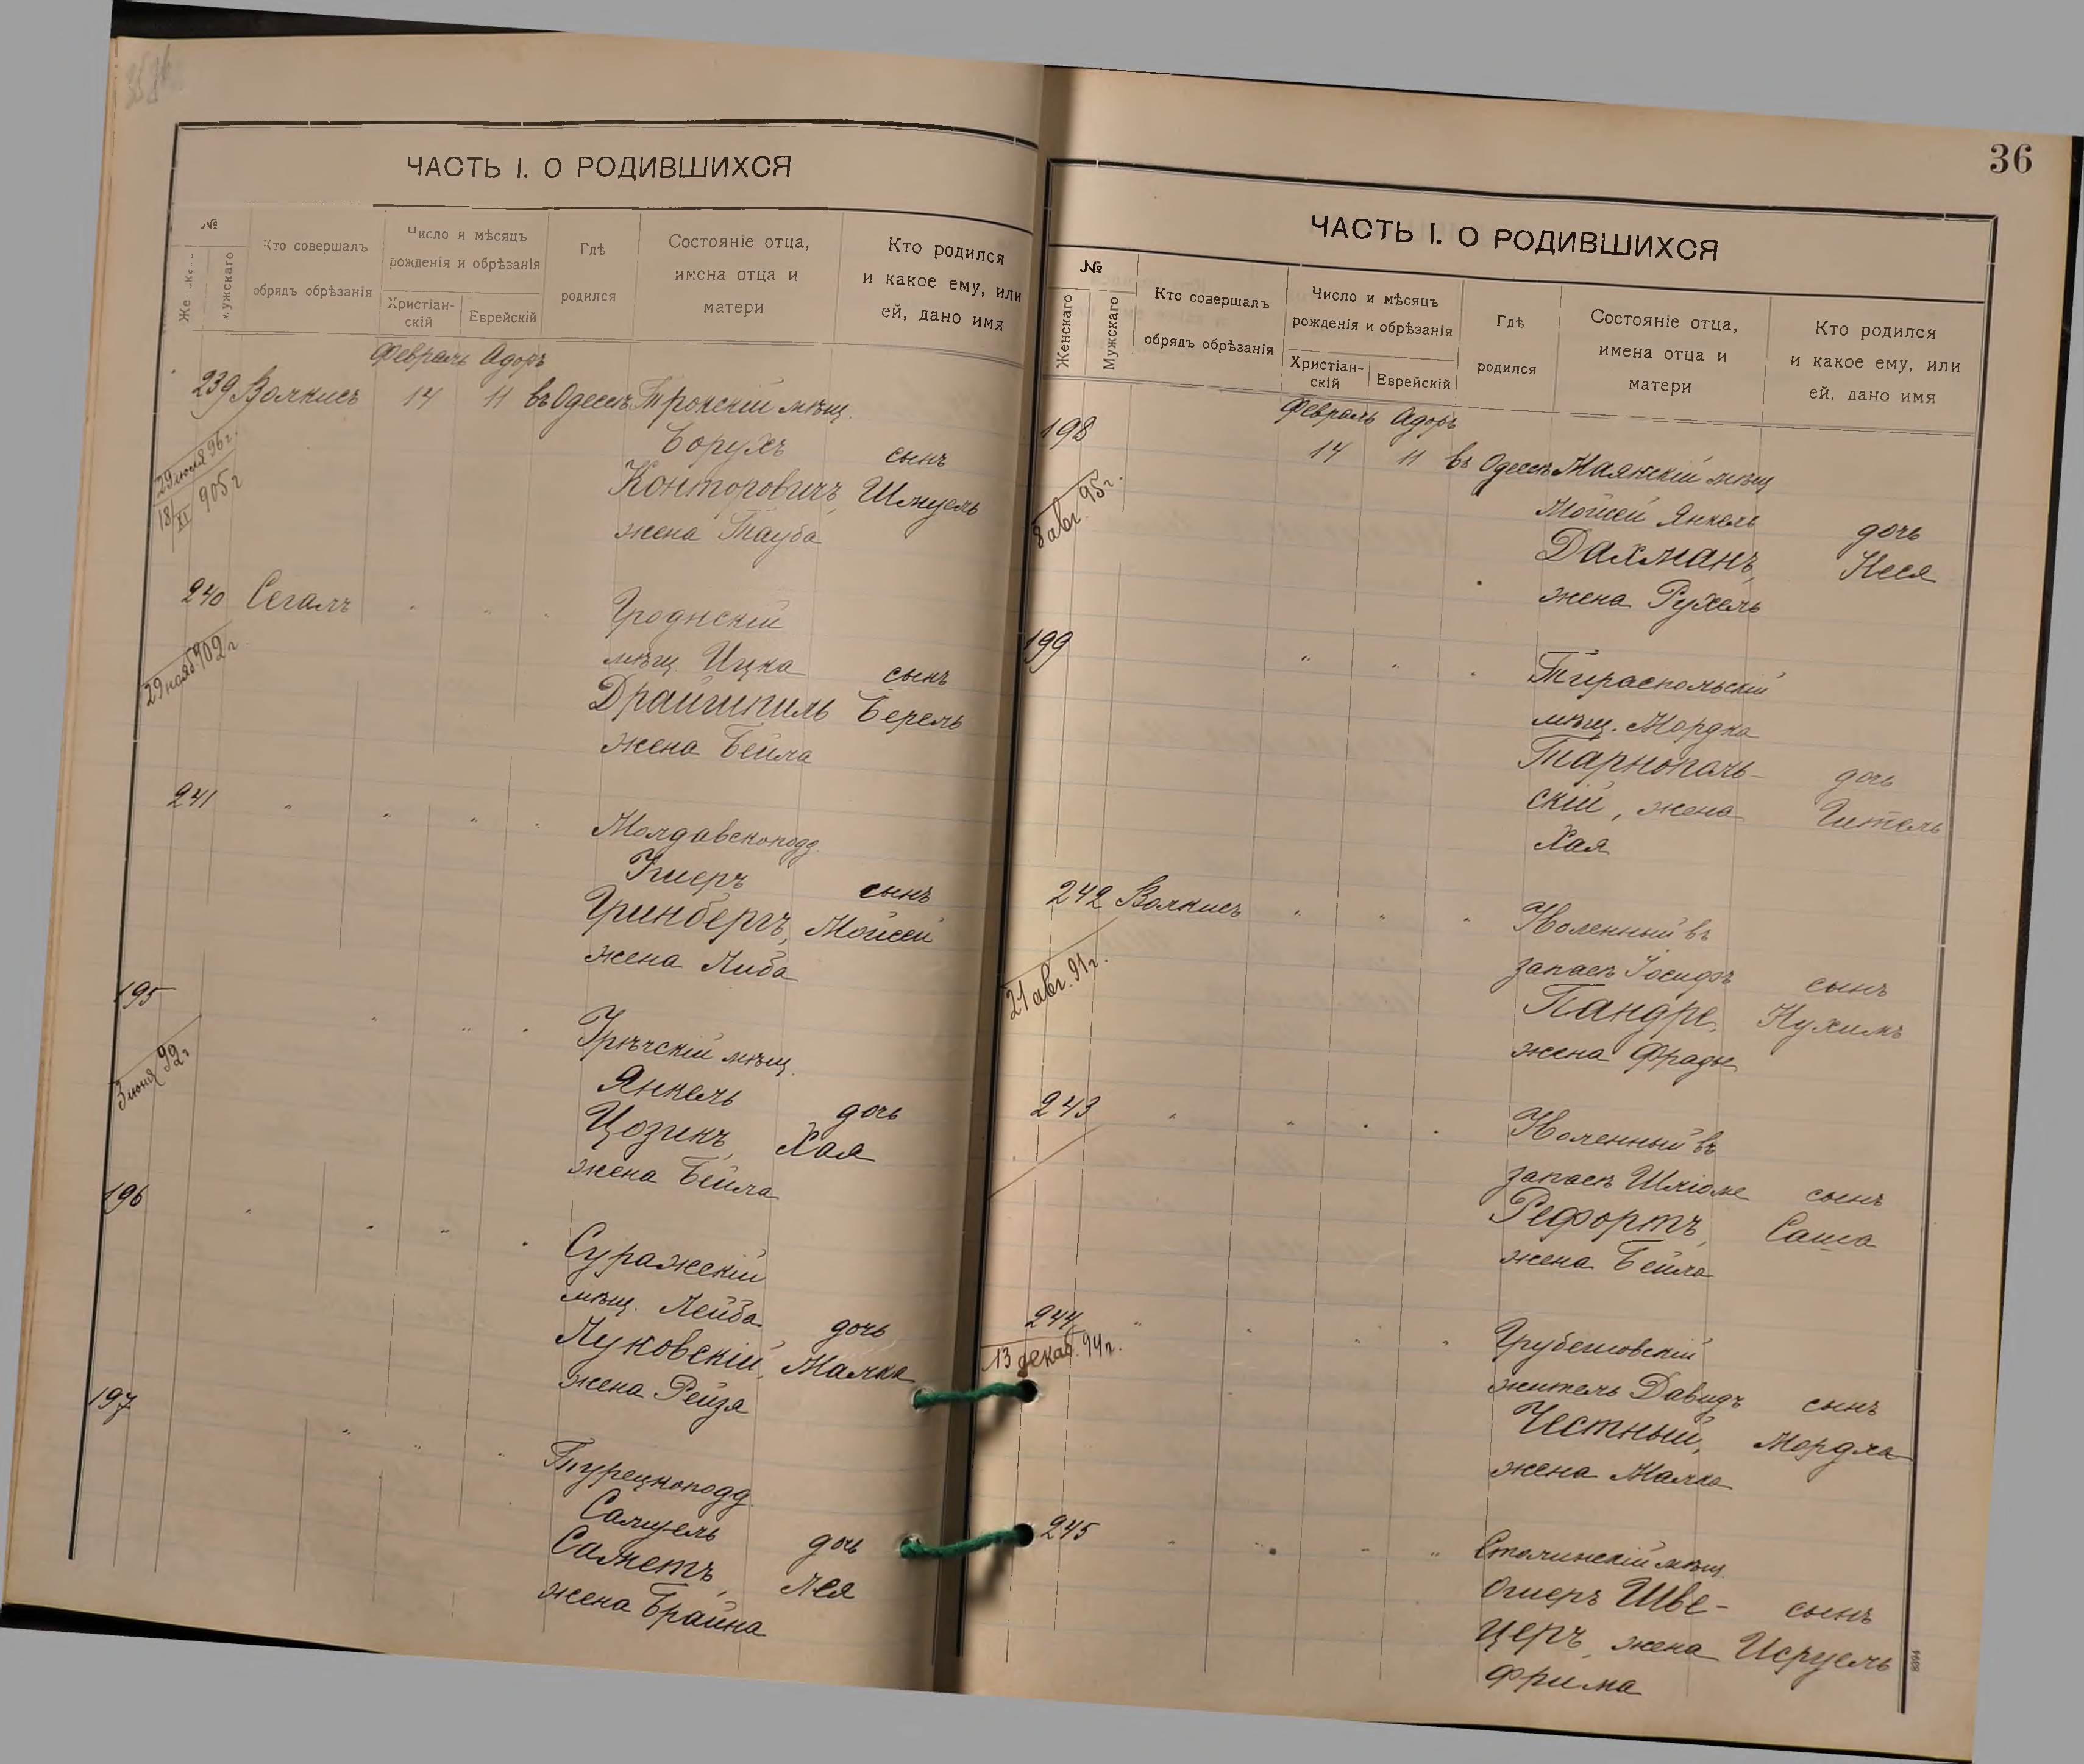 ЧАСТЬ I. О РОДИВШИХСЯ
№
Мужскаго
Кто совершалъ
обрядъ обрѣзанія
Число и мѣсяцъ
рожденія и обрѣзанія
Христіан-
скій
Еврейскій
Гдѣ
родился
Состояніе отца,
имена отца и
матери
Кто родился
и какое ему, или
ей, дано имя
Февраль Адоръ
239 Волкисъ 14 11 въ Одессѣ Трокскій мѣщ.
Борухъ сынъ
Конторовичъ, Шмуель
жена Тауба
29 июля 96 г.
18/XI 905 г
240 Сегалъ " " " Гроднскій
мѣщ. Ицка сынъ
Драйшпиль Берель
жена Бейла
29 нояб 902 г
241 " " " " Молдавскоподд.
Ушеръ сынъ
Гринбергъ, Мойсей
жена Либа
195 " " " мѣщ.
Янкель дочь
Цозикъ, Хая
жена Бейла
3 июня 92 г
196 " " " Суражскій
мѣщ. Лейба дочь
Луковскій, Малка
жена Рейзя
197 " " " Турецкоподд.
Самуель дочь
Саметъ, Лея
жена Брайна
36
ЧАСТЬ I. О РОДИВШИХСЯ
№
Женскаго
Мужскаго
Кто совершалъ
обрядъ обрѣзанія
Число и мѣсяцъ
рожденія и обрѣзанія
Христіан-
скій
Еврейскій
Гдѣ
родился
Состояніе отца,
имена отца и
матери
Кто родился
и какое ему, или
ей, дано имя
Февраль Адоръ
198 14 11 въ Одессѣ Маянскій мѣщ
Мойсей Янкель дочь
Дахманъ, Неся
жена Рухель
8 авг. 95 г.
199 " " " Тираспольскій
мѣщ. Мордко
Тарнополь- дочь
скій, жена Гитель
Хая
242 Волкисъ " " " въ
запасъ Іосифъ сынъ
Пандре, Нухимъ
жена Фрадя
21 авг. 91 г.
243 " " " " въ
запасъ Шліоме сынъ
Рефортъ, Саша
жена Бейла
244 " " " " Грубешовскій
житель Давидъ сынъ
Честный, Мордха
жена Малка
13 декаб. 94 г.
245 " " " " Столинскій мѣщ.
Ошеръ Шве- сынъ
церъ, жена Исруель
Фрима